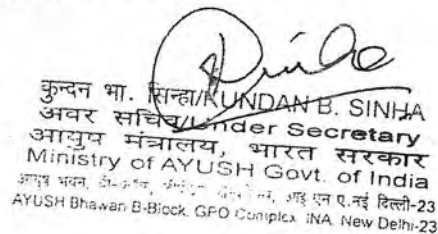 कुन्दन भा. सिन्हा/KUNDAN B. SINHA
अवर सचिव/Under Secretary
आयुष मंत्रालय, भारत सरकार
Ministry of AYUSH Govt. of India
आयुष भवन, आई एन ए. नई दिल्ली-23
AYUSH Bhawan B-Block, GPO Complex INA, New Delhi-23